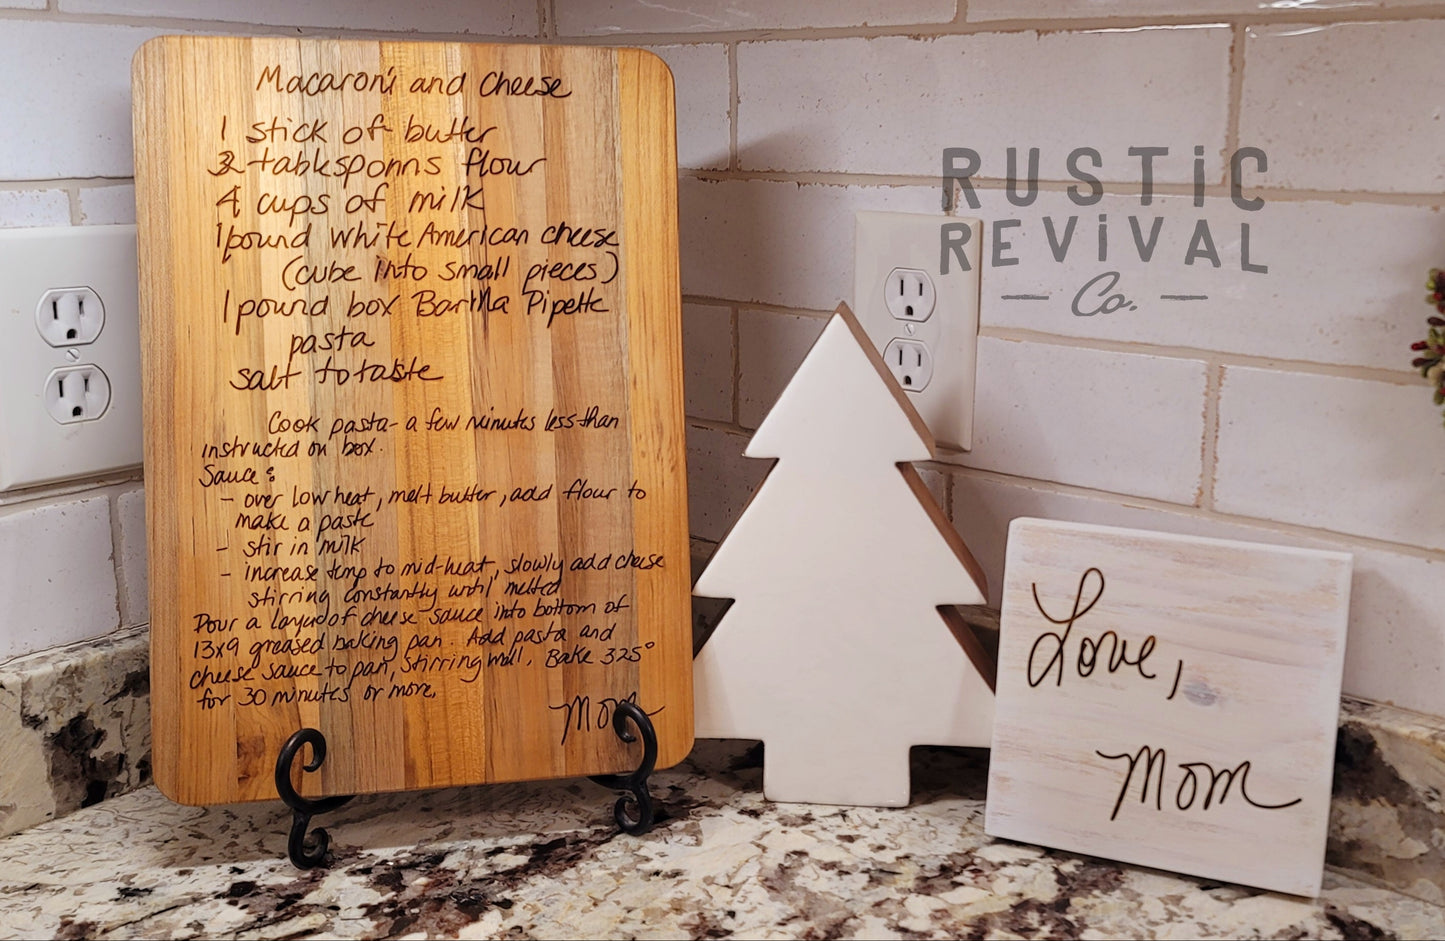 Macaroni and Cheese
1 stick of butter
tablesponns flour
4 cups of milk
1 pound white American cheese
(cube into small pieces)
1 pound box Barilla Pipette
pasta
salt to taste
Cook pasta - a few minutes less than
instructed on box.
Sauce:
- over low heat, melt butter, add flour to
make a paste
- stir in milk
- increase temp to mid-heat, slowly add cheese
stirring constantly until melted
Pour a layer of cheese sauce into bottom of
13x9 greased baking pan. Add pasta and
cheese sauce to pan, stirring well. Bake 325°
for 30 minutes or more.
Mom
RUSTiC
REViVAL
Co.
Love,
Mom